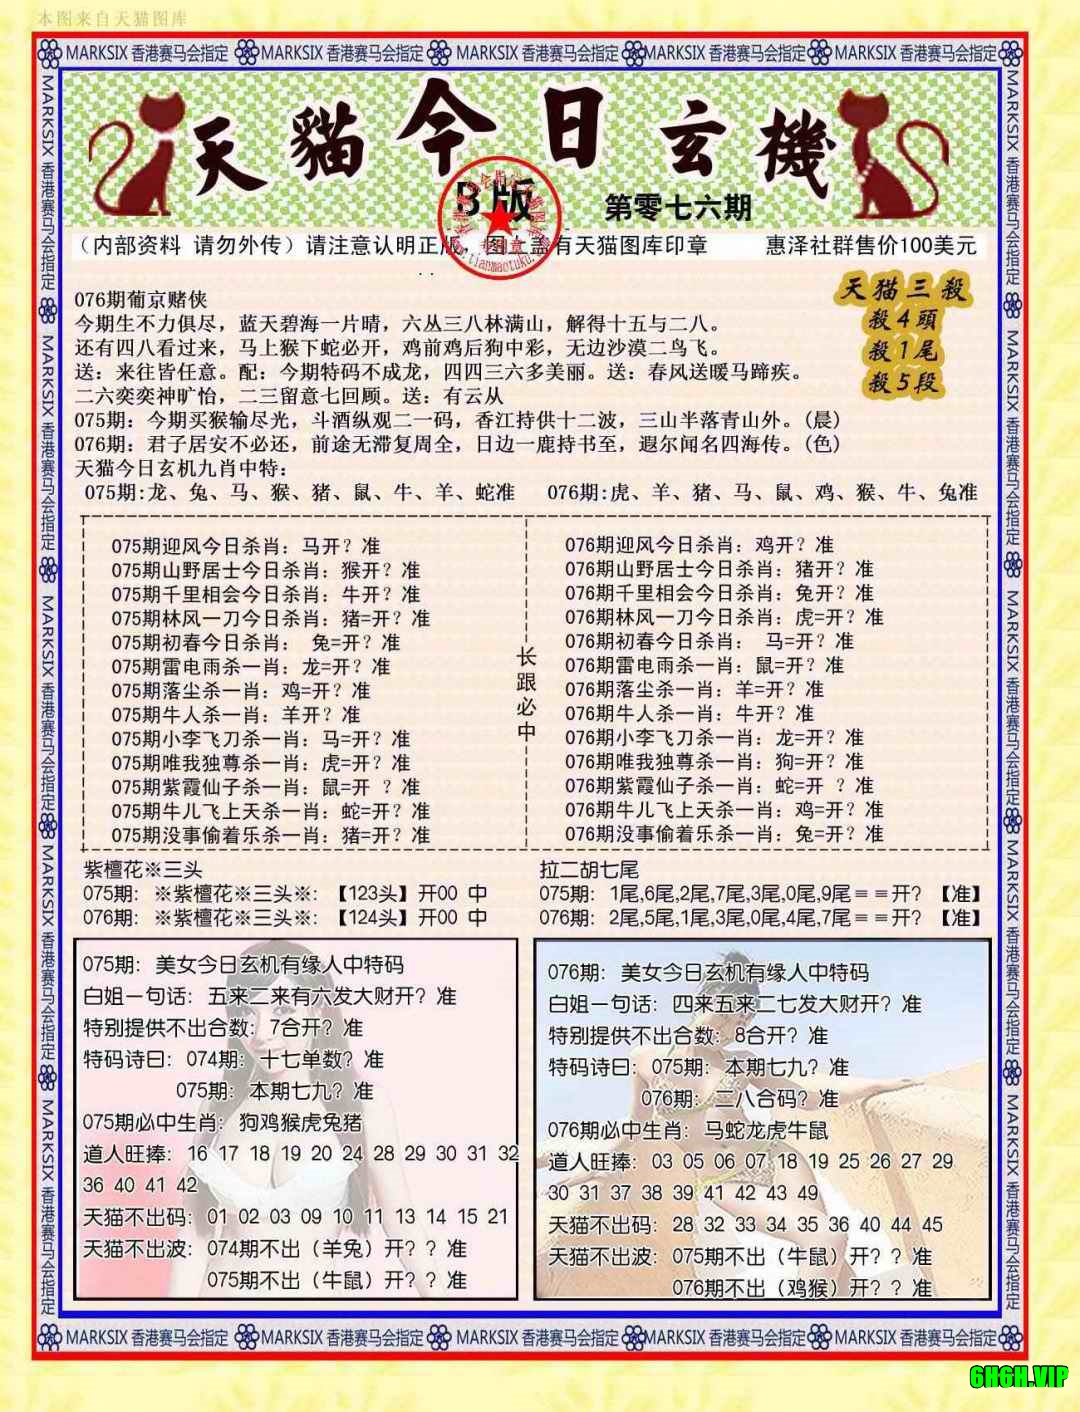 本图来自天猫图库
MARKSIX 香港赛马会指定 MARKSIX 香港赛马会指定 MARKSIX 香港赛马会指定 MARKSIX 香港赛马会指定 MARKSIX 香港赛马会指定
天貓今日玄機
B版
第零七六期
（内部资料 请勿外传）请注意认明正版，图上盖有天猫图库印章 惠泽社群售价100美元
天猫三殺
殺4頭
殺1尾
殺5段
076期葡京赌侠
今期生不力俱尽，蓝天碧海一片晴，六丛三八林满山，解得十五与二八。
还有四八看过来，马上猴下蛇必开，鸡前鸡后狗中彩，无边沙漠二鸟飞。
送：来往皆任意。配：今期特码不成龙，四四三六多美丽。送：春风送暖马蹄疾。
二六奕奕神旷怡，二三留意七回顾。送：有云从
075期：今期买猴输尽光，斗酒纵观二一码，香江持供十二波，三山半落青山外。(晨)
076期：君子居安不必还，前途无滞复周全，日边一鹿持书至，遐尔闻名四海传。(色)
天猫今日玄机九肖中特：
075期:龙、兔、马、猴、猪、鼠、牛、羊、蛇准 076期:虎、羊、猪、马、鼠、鸡、猴、牛、兔准
075期迎风今日杀肖：马开？准
075期山野居士今日杀肖：猴开？准
075期千里相会今日杀肖：牛开？准
075期林风一刀今日杀肖：猪=开？准
075期初春今日杀肖： 兔=开？准
075期雷电雨杀一肖：龙=开？准
075期落尘杀一肖：鸡=开？准
075期牛人杀一肖：羊开？准
075期小李飞刀杀一肖：马=开？准
075期唯我独尊杀一肖：虎=开？准
075期紫霞仙子杀一肖：鼠=开 ？准
075期牛儿飞上天杀一肖：蛇=开？准
075期没事偷着乐杀一肖：猪=开？准
长跟必中
076期迎风今日杀肖：鸡开？准
076期山野居士今日杀肖：猪开？准
076期千里相会今日杀肖：兔开？准
076期林风一刀今日杀肖：虎=开？准
076期初春今日杀肖： 马=开？准
076期雷电雨杀一肖：鼠=开？准
076期落尘杀一肖：羊=开？准
076期牛人杀一肖：牛开？准
076期小李飞刀杀一肖：龙=开？准
076期唯我独尊杀一肖：狗=开？准
076期紫霞仙子杀一肖：蛇=开？准
076期牛儿飞上天杀一肖：鸡=开？准
076期没事偷着乐杀一肖：兔=开？准
紫檀花※三头
075期： ※紫檀花※三头※：【123头】开00 中
076期： ※紫檀花※三头※：【124头】开00 中
拉二胡七尾
075期： 1尾,6尾,2尾,7尾,3尾,0尾,9尾＝＝开？【准】
076期： 2尾,5尾,1尾,3尾,0尾,4尾,7尾＝＝开？【准】
075期：美女今日玄机有缘人中特码
白姐一句话：五来二来有六发大财开？准
特别提供不出合数：7合开？准
特码诗曰：074期：十七单数？准
075期：本期七九？准
075期必中生肖：狗鸡猴虎兔猪
道人旺捧：16 17 18 19 20 24 28 29 30 31 32
36 40 41 42
天猫不出码：01 02 03 09 10 11 13 14 15 21
天猫不出波：074期不出（羊兔）开？？准
075期不出（牛鼠）开？？准
076期：美女今日玄机有缘人中特码
白姐一句话：四来五来二七发大财开？准
特别提供不出合数：8合开？准
特码诗曰：075期：本期七九？准
076期：二八合码？准
076期必中生肖：马蛇龙虎牛鼠
道人旺捧：03 05 06 07 18 19 25 26 27 29
30 31 37 38 39 41 42 43 49
天猫不出码：28 32 33 34 35 36 40 44 45
天猫不出波：075期不出（牛鼠）开？？准
076期不出（鸡猴）开？？准
MARKSIX 香港赛马会指定 MARKSIX 香港赛马会指定 MARKSIX 香港赛马会指定 MARKSIX 香港赛马会指定 MARKSIX 香港赛马会指定
6HGH.VIP